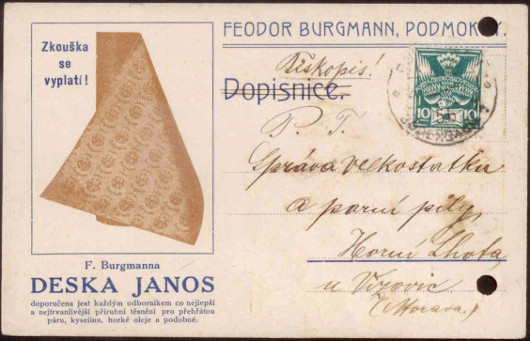 Zkouška
se
vyplatí!
F. Burgmanna
DESKA JANOS
doporučena jest každým odborníkem co nejlepší
a nejtrvanlivější přírubní těsnění pro přehřátou
páru, kyselinu, horké oleje a podobné.
FEODOR BURGMANN, PODMOKLY.
Tiskopis!
Dopisnice.
10 10
P. T.
Správa velkostatku
a parní pily,
Horní Lhota,
u Vizovic
(Morava.)